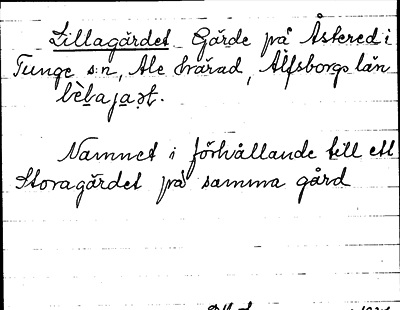 Lillagärdet Gärde på Åskered i
Tunge sn, Ale härad, Älfsborgs län
Namnet i förhållande till ett
Storagärdet på samma gård